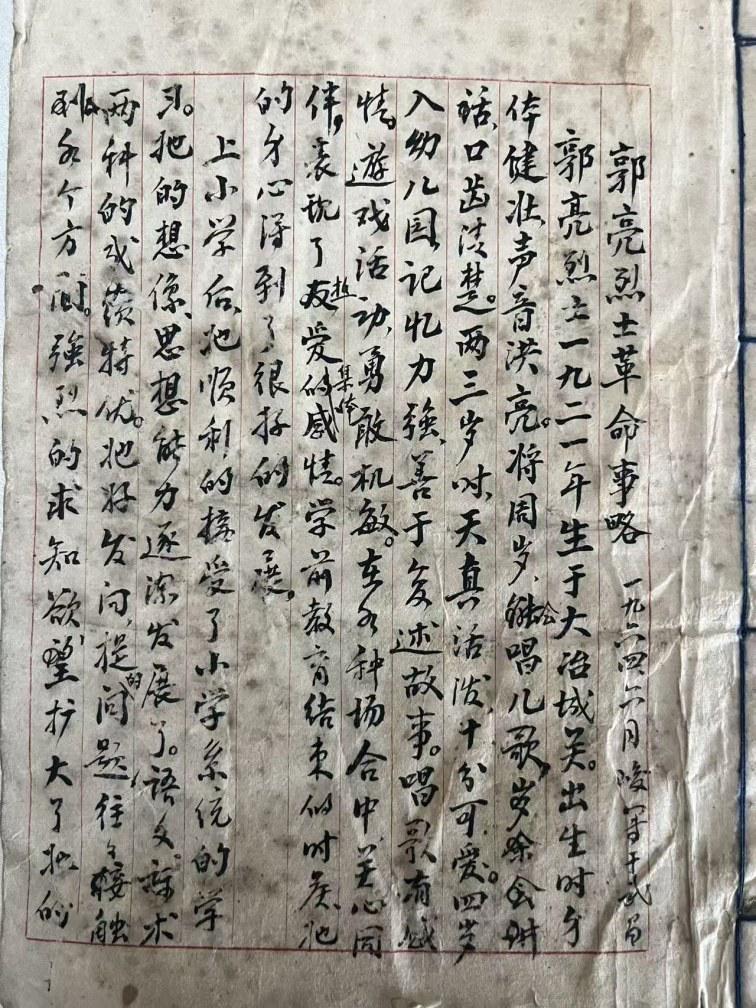 郭亮烈士革命事略 一九六四六月 峻第于武昌
郭亮烈士一九二一年生于大冶城关。出生时身
体健壮,声音洪亮。将周岁、能会唱儿歌,岁余会讲
话,口齿清楚。两三岁时、天真活泼,十分可爱。四岁
入幼儿园,记忆力強,善于复述故事。唱歌有感
情。遊戏活动,勇敢机敏。在各种场合中,关心同
伴,表现了友热爱的集体感情。学前教育结束的时候,他
的身心得到了很好的发展,
上小学后,他顺利的接受了小学系统的学
习。他的想像、思想能力逐漸发展了。语文、算术
两科的成绩特优。他好发问,提的问题,往々接触
到各个方面。強烈的求知欲望扩大了他的